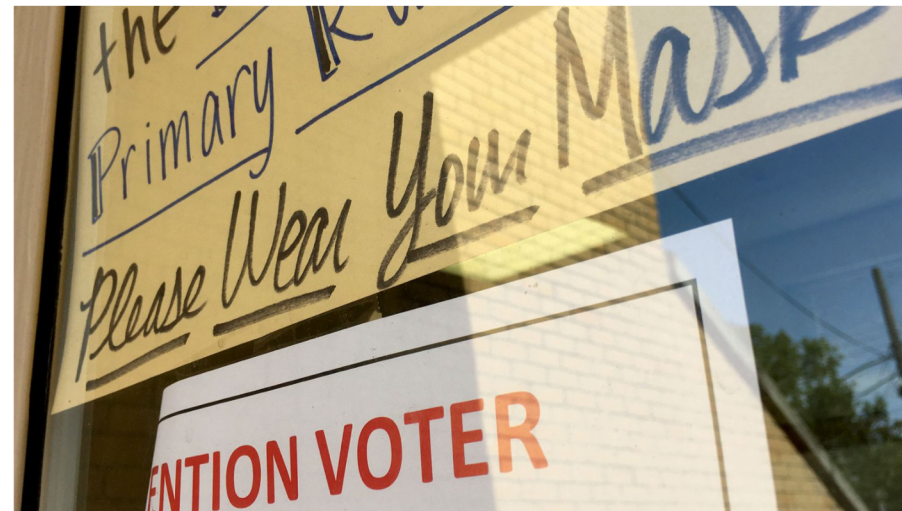 the
Primary
Please Wear Your Mask
ENTION VOTER